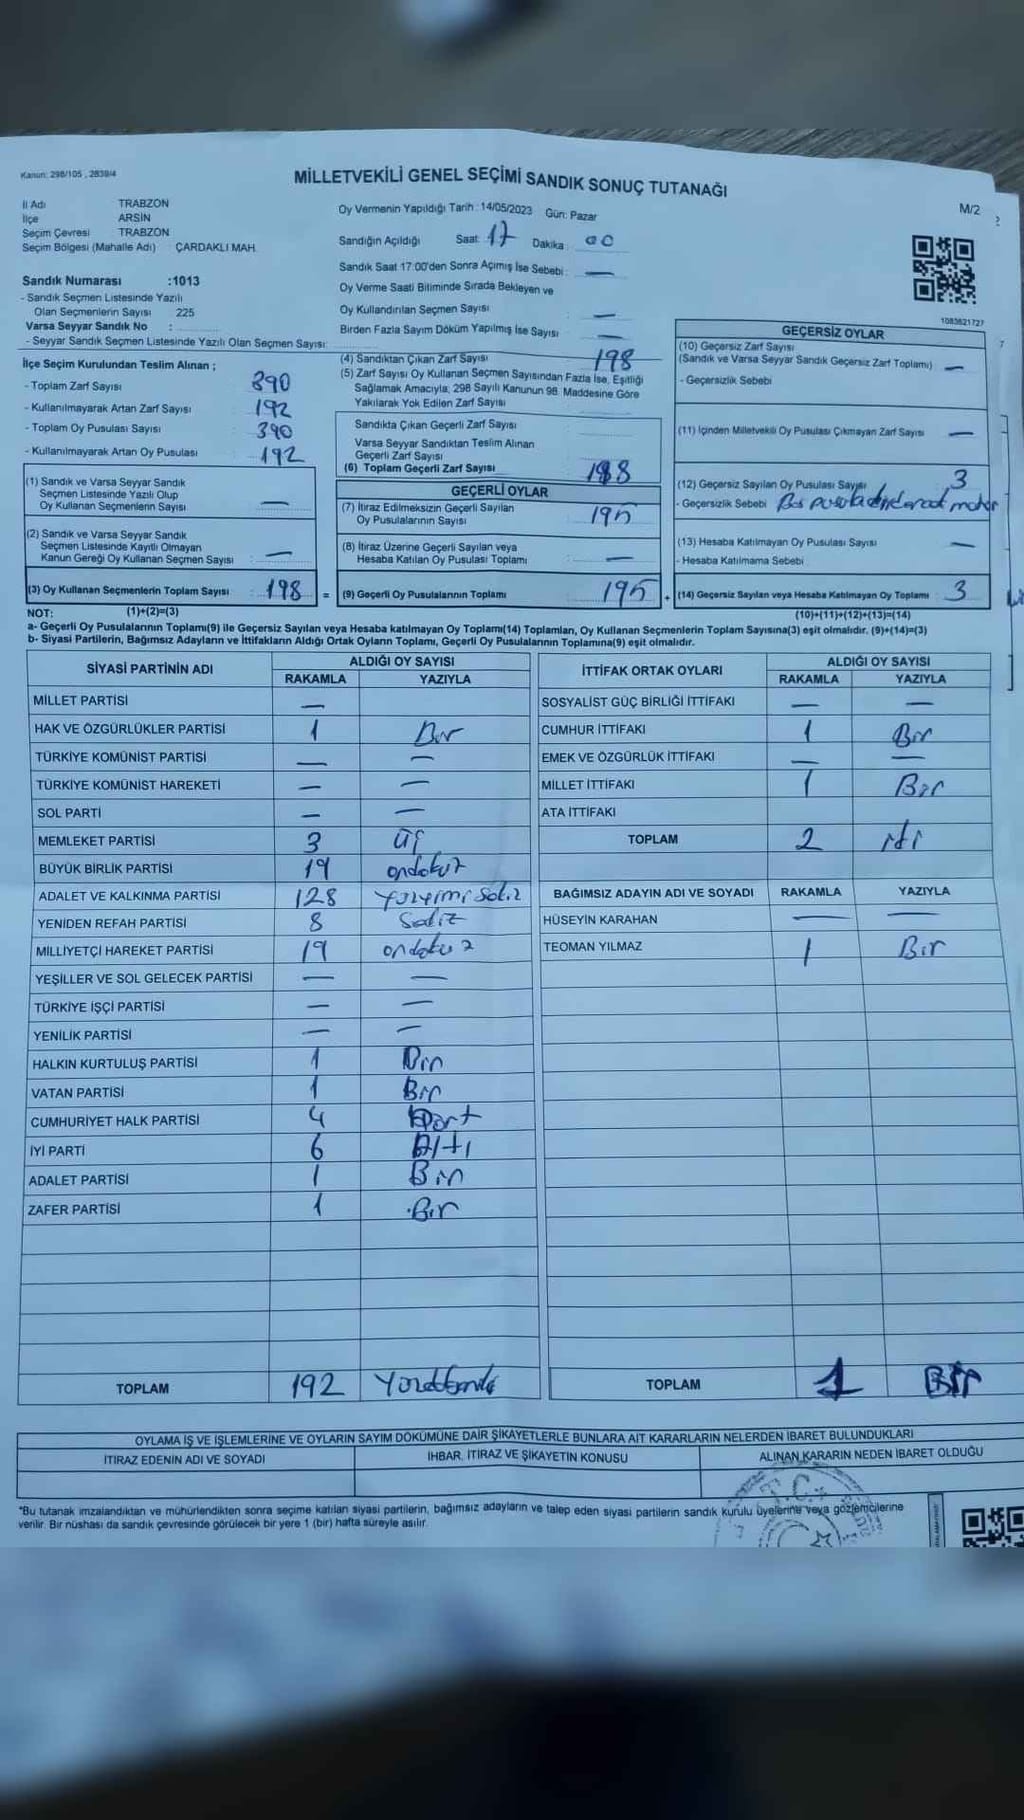 Kanun: 298/105 , 2839/4
MİLLETVEKİLİ GENEL SEÇİMİ SANDIK SONUÇ TUTANAĞI
M/2
İl Adı TRABZON
İlçe ARSİN
Seçim Çevresi TRABZON
Seçim Bölgesi (Mahalle Adı) ÇARDAKLI MAH.
Oy Vermenin Yapıldığı Tarih : 14/05/2023 Gün: Pazar
Sandığın Açıldığı Saat: 17 Dakika : 00
Sandık Saat 17:00'den Sonra Açımış İse Sebebi : —
Oy Verme Saati Bitiminde Sırada Bekleyen ve
Oy Kullandırılan Seçmen Sayısı —
Birden Fazla Sayım Döküm Yapılmış İse Sayısı —
Sandık Numarası :1013
- Sandık Seçmen Listesinde Yazılı
Olan Seçmenlerin Sayısı 225
Varsa Seyyar Sandık No :
- Seyyar Sandık Seçmen Listesinde Yazılı Olan Seçmen Sayısı:
1083621727
İlçe Seçim Kurulundan Teslim Alınan ;
- Toplam Zarf Sayısı 390
- Kullanılmayarak Artan Zarf Sayısı 192
- Toplam Oy Pusulası Sayısı 390
- Kullanılmayarak Artan Oy Pusulası 192
(1) Sandık ve Varsa Seyyar Sandık
Seçmen Listesinde Yazılı Olup
Oy Kullanan Seçmenlerin Sayısı —
(2) Sandık ve Varsa Seyyar Sandık
Seçmen Listesinde Kayıtlı Olmayan
Kanun Gereği Oy Kullanan Seçmen Sayısı : —
(3) Oy Kullanan Seçmenlerin Toplam Sayısı : 198 =
(4) Sandıktan Çıkan Zarf Sayısı 198
(5) Zarf Sayısı Oy Kullanan Seçmen Sayısından Fazla İse, Eşitliği
Sağlamak Amacıyla; 298 Sayılı Kanunun 98. Maddesine Göre
Yakılarak Yok Edilen Zarf Sayısı
Sandıkta Çıkan Geçerli Zarf Sayısı
Varsa Seyyar Sandıktan Teslim Alınan
Geçerli Zarf Sayısı
(6) Toplam Geçerli Zarf Sayısı 198
GEÇERLİ OYLAR
(7) İtiraz Edilmeksizin Geçerli Sayılan
Oy Pusulalarının Sayısı 195
(8) İtiraz Üzerine Geçerli Sayılan veya
Hesaba Katılan Oy Pusulası Toplamı —
(9) Geçerli Oy Pusulalarının Toplamı 195 +
GEÇERSİZ OYLAR
(10) Geçersiz Zarf Sayısı
(Sandık ve Varsa Seyyar Sandık Geçersiz Zarf Toplamı) —
- Geçersizlik Sebebi
(11) İçinden Milletvekili Oy Pusulası Çıkmayan Zarf Sayısı —
(12) Geçersiz Sayılan Oy Pusulası Sayısı 3
- Geçersizlik Sebebi
(13) Hesaba Katılmayan Oy Pusulası Sayısı —
- Hesaba Katılmama Sebebi
(14) Geçersiz Sayılan veya Hesaba Katılmayan Oy Toplamı 3
NOT: (1)+(2)=(3) (10)+(11)+(12)+(13)=(14)
a- Geçerli Oy Pusulalarının Toplamı(9) ile Geçersiz Sayılan veya Hesaba katılmayan Oy Toplamı(14) Toplamları, Oy Kullanan Seçmenlerin Toplam Sayısına(3) eşit olmalıdır. (9)+(14)=(3)
b- Siyasi Partilerin, Bağımsız Adayların ve İttifakların Aldığı Ortak Oyların Toplamı, Geçerli Oy Pusulalarının Toplamına(9) eşit olmalıdır.
SİYASİ PARTİNİN ADI ALDIĞI OY SAYISI
RAKAMLA YAZIYLA
MİLLET PARTİSİ —
HAK VE ÖZGÜRLÜKLER PARTİSİ 1 Bir
TÜRKİYE KOMÜNİST PARTİSİ — —
TÜRKİYE KOMÜNİST HAREKETİ — —
SOL PARTİ — —
MEMLEKET PARTİSİ 3 üç
BÜYÜK BİRLİK PARTİSİ 19 ondokuz
ADALET VE KALKINMA PARTİSİ 128
YENİDEN REFAH PARTİSİ 8 Sekiz
MİLLİYETÇİ HAREKET PARTİSİ 19 ondokuz
YEŞİLLER VE SOL GELECEK PARTİSİ — —
TÜRKİYE İŞÇİ PARTİSİ — —
YENİLİK PARTİSİ — —
HALKIN KURTULUŞ PARTİSİ 1 Bir
VATAN PARTİSİ 1 Bir
CUMHURİYET HALK PARTİSİ 4 Dört
İYİ PARTİ 6 Altı
ADALET PARTİSİ 1 Bir
ZAFER PARTİSİ 1 Bir
TOPLAM 192
İTTİFAK ORTAK OYLARI ALDIĞI OY SAYISI
RAKAMLA YAZIYLA
SOSYALİST GÜÇ BİRLİĞİ İTTİFAKI — —
CUMHUR İTTİFAKI 1 Bir
EMEK VE ÖZGÜRLÜK İTTİFAKI — —
MİLLET İTTİFAKI 1 Bir
ATA İTTİFAKI
TOPLAM 2 iki
BAĞIMSIZ ADAYIN ADI VE SOYADI RAKAMLA YAZIYLA
HÜSEYİN KARAHAN — —
TEOMAN YILMAZ 1 Bir
TOPLAM 1 Bir
OYLAMA İŞ VE İŞLEMLERİNE VE OYLARIN SAYIM DÖKÜMÜNE DAİR ŞİKAYETLERLE BUNLARA AİT KARARLARIN NELERDEN İBARET BULUNDUKLARI
İTİRAZ EDENİN ADI VE SOYADI İHBAR, İTİRAZ VE ŞİKAYETİN KONUSU ALINAN KARARIN NEDEN İBARET OLDUĞU
*Bu tutanak imzalandıktan ve mühürlendikten sonra seçime katılan siyasi partilerin, bağımsız adayların ve talep eden siyasi partilerin sandık kurulu üyelerine veya gözlemcilerine
verilir. Bir nüshası da sandık çevresinde görülecek bir yere 1 (bir) hafta süreyle asılır.
T.C.